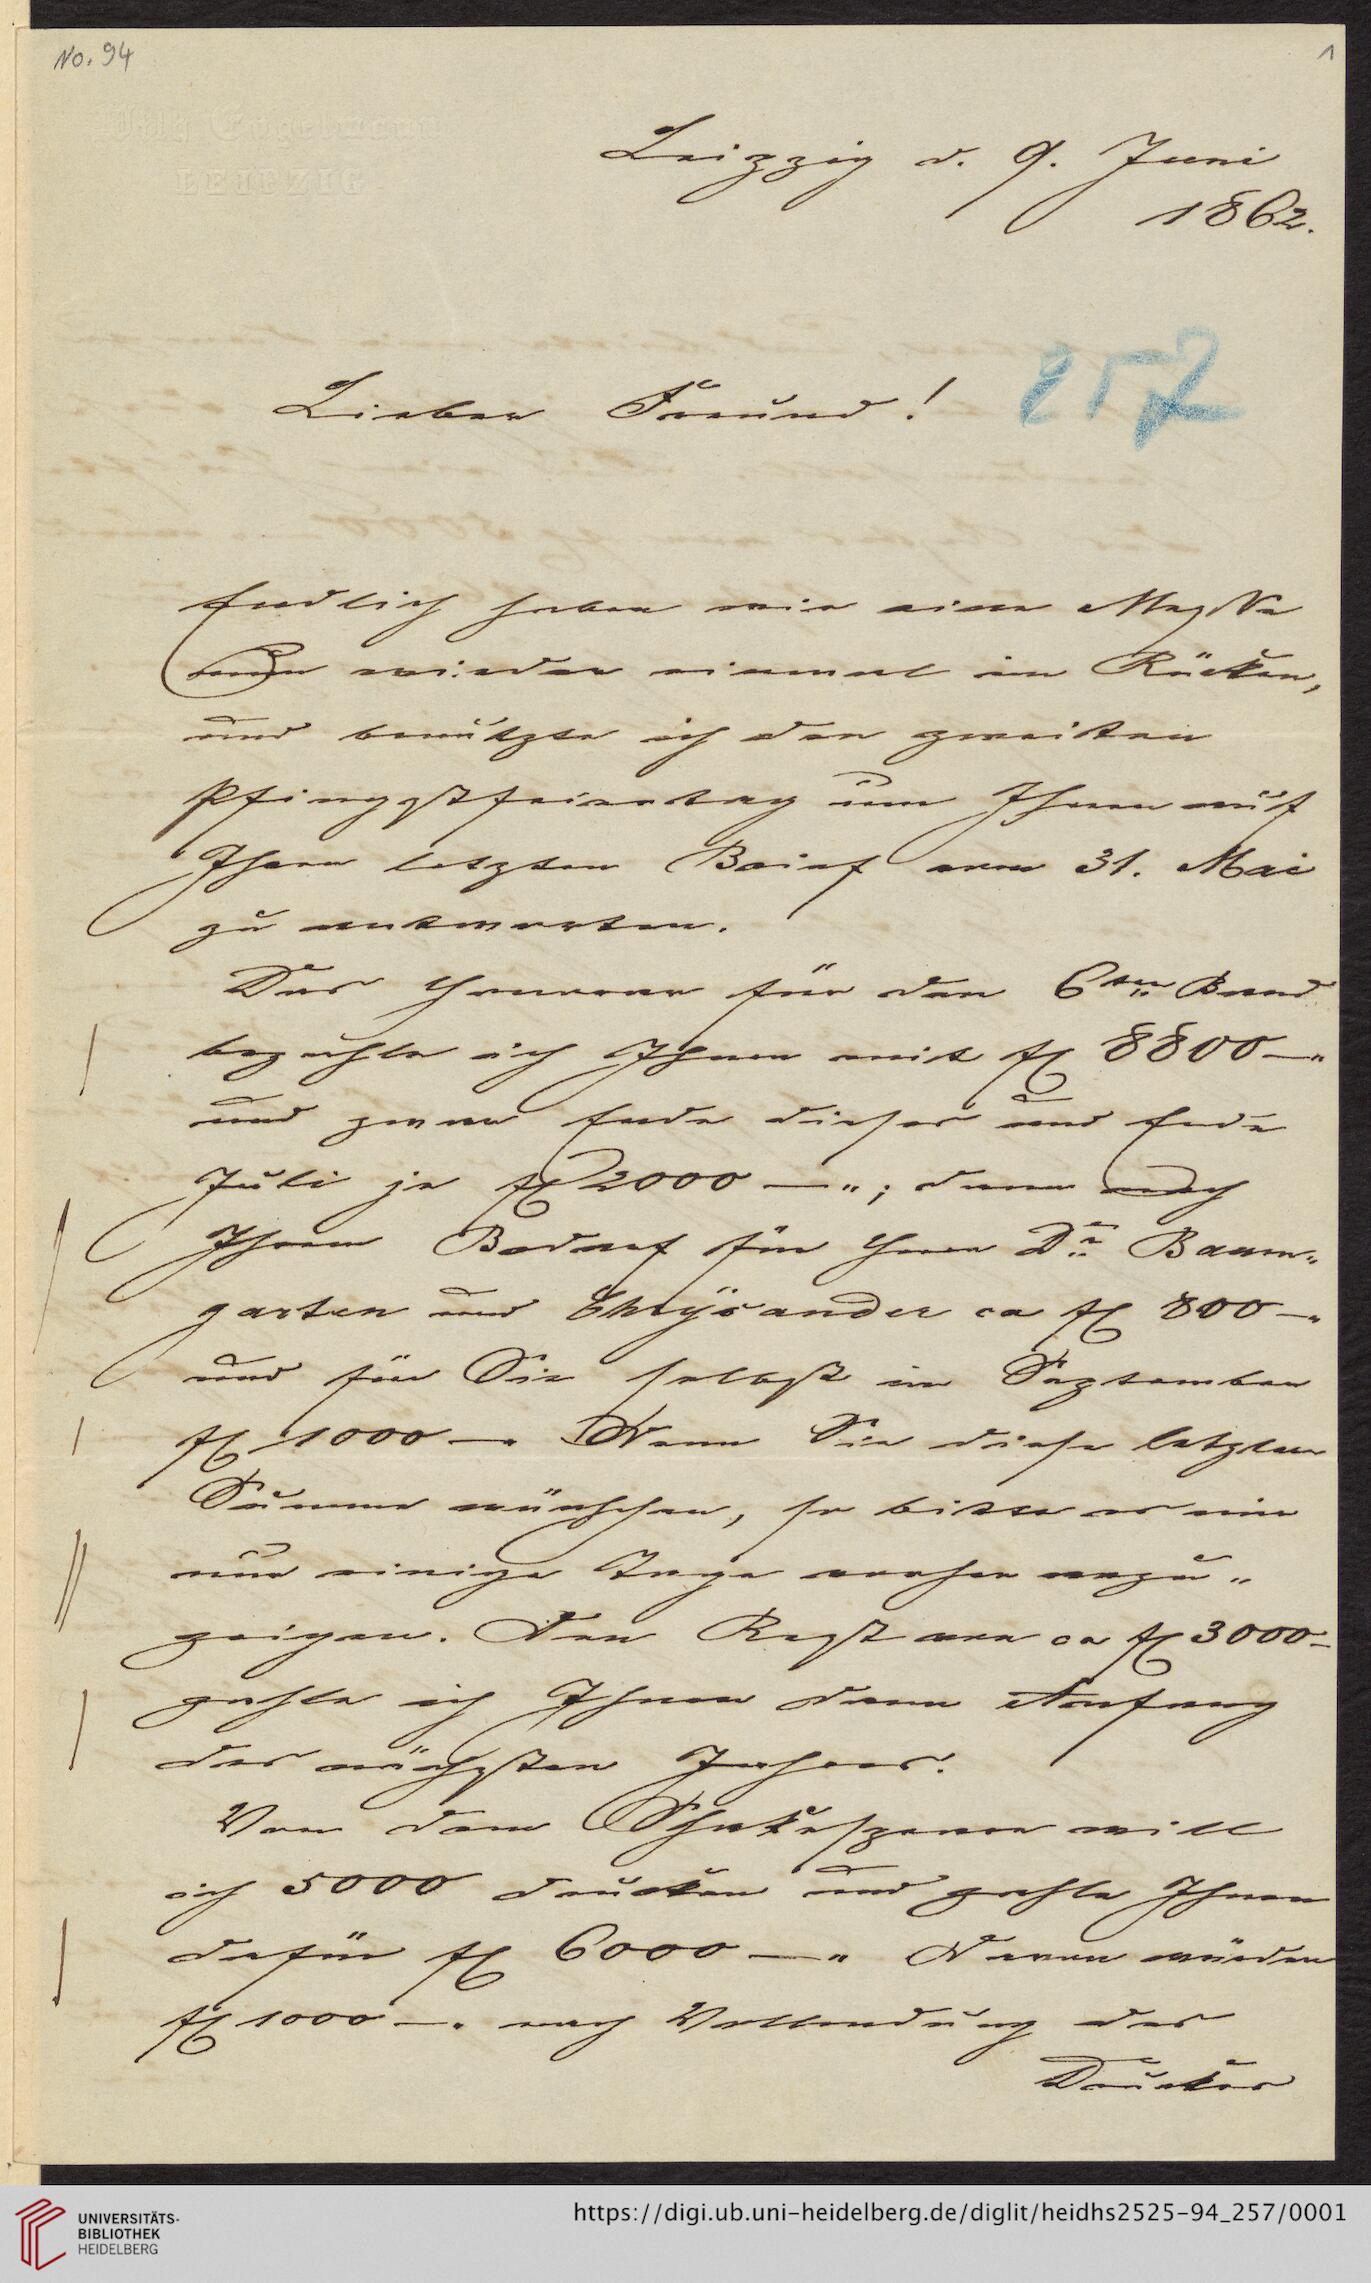 No. 94
1
Wilh Engelmann
LEIPZIG
Leipzig d. 9. Juni
1862.
Lieber Freund!
257
Endlich haben wir eine Messe
wieder einmal im Rücken,
und benützte ich den zweiten
Pfingstfeiertag um Ihnen auf
Ihren letzten Brief vom 31. Mai
zu antworten.
Das Honorar für den 6ten Band
bezahle ich Ihnen mit fl 8800 —"
und zwar Ende dieses und Ende
Juli je fl 2000 —"; dann nach
Ihrem Bedarf für Herrn Dr. Baum„
garten und Chrysander ca fl 800 —"
und für Sie selbst im September
fl 1000 —. Wenn Sie diese letztere
Summe wünschen, so bitte es mir
nur einige Tage vorher anzu„
zeigen. Den Rest von ca fl 3000 —
zahle ich Ihnen dann Anfang
des nächsten Jahres.
Von dem Shakespeare will
ich 5000 drucken und zahle Ihnen
dafür fl 6000 —" Davon würden
fl 1000 —. nach Vollendung des
Druckes
UNIVERSITÄTS-
BIBLIOTHEK
HEIDELBERG
https://digi.ub.uni-heidelberg.de/diglit/heidhs2525-94_257/0001